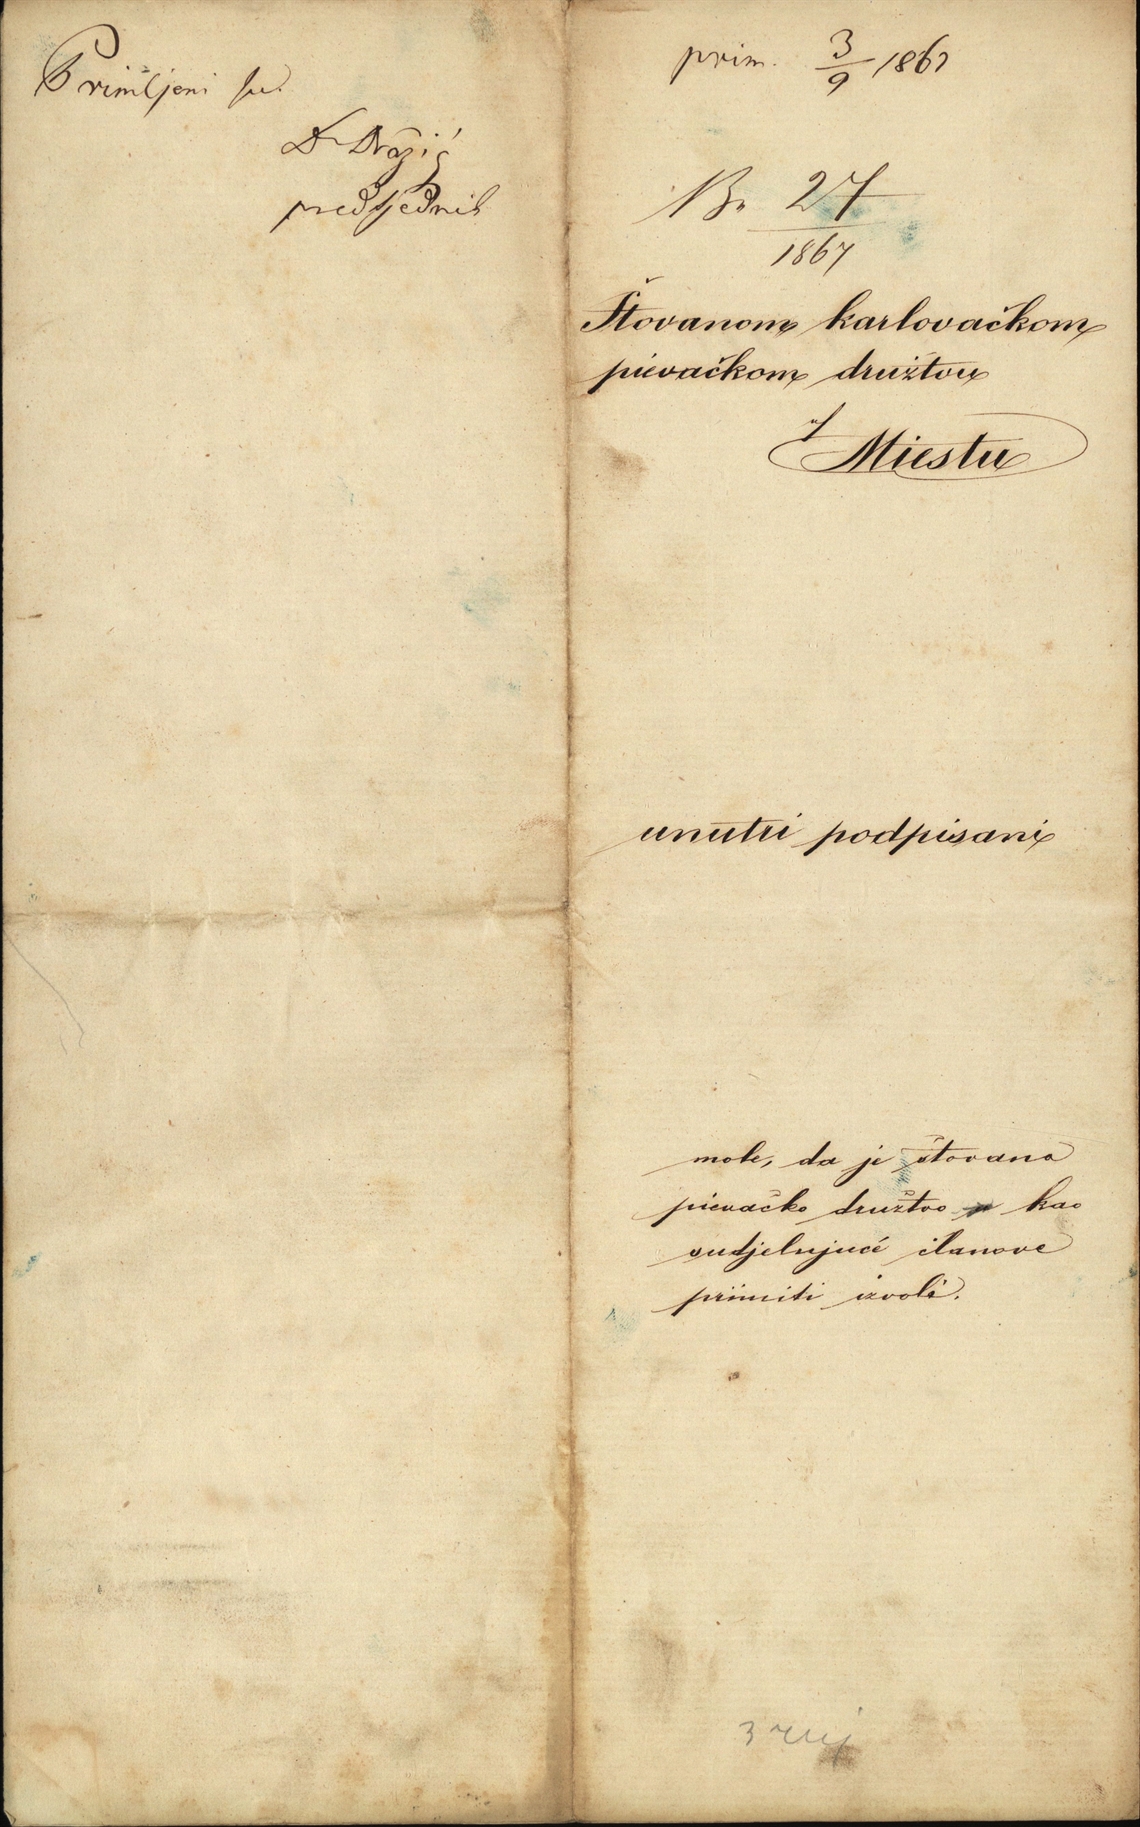 Primljeni su.
Dr Dražić
predsjednik
prim. 3/9 1867
Br. 27
1867
Štovanom karlovačkom
pievačkom družtvu
u
Miestu
unutri podpisani
mole, da je štovano
pievačko družtvo kao
sudjelujuće članove
priimiti izvoli.
3 ruj